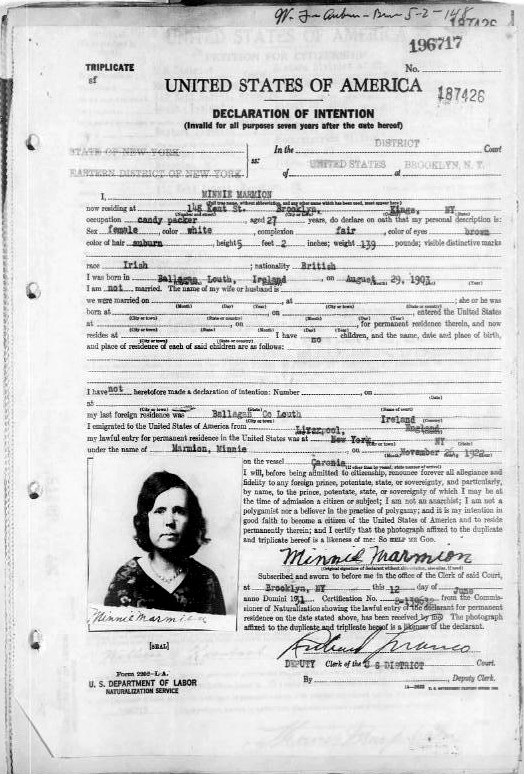 196717
TRIPLICATE
No.
UNITED STATES OF AMERICA
187426
DECLARATION OF INTENTION
(Invalid for all purposes seven years after the date hereof)
STATE OF NEW YORK
In the DISTRICT Court
ss:
EASTERN DISTRICT OF NEW YORK
of UNITED STATES at BROOKLYN, N. Y.
I, MINNIE MARMION
now residing at 148 Kent St. Brooklyn, Kings, NY
occupation candy packer, aged 27 years, do declare on oath that my personal description is:
Sex female, color white, complexion fair, color of eyes brown
color of hair auburn, height 5 feet 2 inches; weight 139 pounds; visible distinctive marks
race Irish; nationality British
I was born in Ballagan Louth, Ireland, on August 29, 1903
I am not married. The name of my wife or husband is
we were married on, at; she or he was
born at, on, entered the United States
at, on, for permanent residence therein, and now
resides at. I have no children, and the name, date and place of birth,
and place of residence of each of said children are as follows:
I have not heretofore made a declaration of intention: Number, on
at
my last foreign residence was Ballagan Co Louth Ireland
I emigrated to the United States of America from Liverpool, England
my lawful entry for permanent residence in the United States was at New York, NY
under the name of Marmion, Minnie, on November
on the vessel
I will, before being admitted to citizenship, renounce forever all allegiance and
fidelity to any foreign prince, potentate, state, or sovereignty, and particularly,
by name, to the prince, potentate, state, or sovereignty of which I may be at
the time of admission a citizen or subject; I am not an anarchist; I am not a
polygamist nor a believer in the practice of polygamy; and it is my intention in
good faith to become a citizen of the United States of America and to reside
permanently therein; and I certify that the photograph affixed to the duplicate
and triplicate hereof is a likeness of me: SO HELP ME GOD.
Minnie Marmion
Subscribed and sworn to before me in the office of the Clerk of said Court,
at Brooklyn, NY this 12 day of June
anno Domini Certification No. from the Commis-
sioner of Naturalization showing the lawful entry of the declarant for permanent
residence on the date stated above, has been received by me. The photograph
affixed to the duplicate and triplicate hereof is a likeness of the declarant.
Minnie Marmion
[SEAL]
DEPUTY Clerk of the U S DISTRICT Court.
By, Deputy Clerk.
Form 2202-L-A.
U. S. DEPARTMENT OF LABOR
NATURALIZATION SERVICE